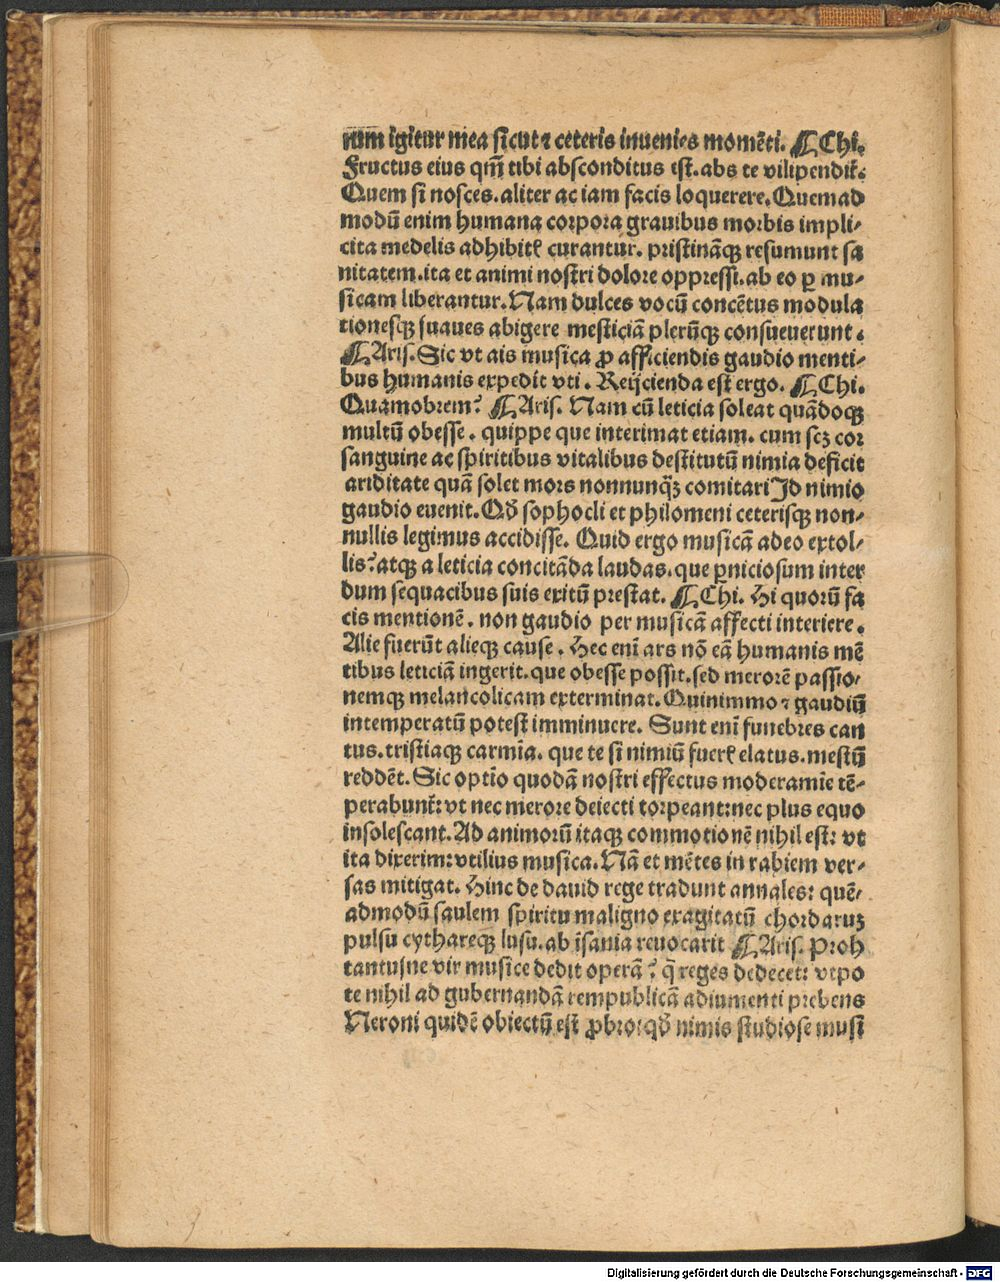 num igitur mea sicut ⁊ ceteris inuenies momēti. ¶ Chi.
Fructus eius qm̄ tibi absconditus est. abs te vilipendit̄.
Quem si nosces. aliter ac iam facis loquerere. Quemad
modū enim humana corpora grauibus morbis impli⸗
cita medelis adhibitꝭ curantur. pristināqꝫ resumunt sa
nitatem. ita et animi nostri dolore oppressi. ab eo ꝑ mu⸗
sicam liberantur. Nam dulces vocū concētus modula
tionesqꝫ suaues abigere mesticiā plerūqꝫ consueuerunt.
¶ Aris. Sic vt ais musica ꝓ afficiendis gaudio menti⸗
bus humanis expedit vti. Reijcienda est ergo. ¶ Chi.
Quāmobrem? ¶ Aris. Nam cū leticia soleat quādoqꝫ
multū obesse. quippe que interimat etiam. cum scꝫ cor
sanguine ac spiritibus vitalibus destitutū nimia deficit
ariditate quā solet mors nonnunqꝫ̄ comitari Id nimio
gaudio euenit. Qđ sophocli et philomeni ceterisqꝫ non⸗
nullis legimus accidisse. Quid ergo musicā adeo extol⸗
lis? atqꝫ a leticia concitāda laudas. que ꝑniciosum inter
dum sequacibus suis exitū prestat. ¶ Chi. Hi quorū fa
cis mentionē. non gaudio per musicā affecti interiere.
Alie fuerūt alieqꝫ cause. Hec enī ars nō eā humanis mē
tibus leticiā ingerit. que obesse possit. sed merorē passio⸗
nemqꝫ melancolicam exterminat. Quinimmo ⁊ gaudiū
intemperatū potest imminuere. Sunt enī funebres can
tus. tristiaqꝫ carmīa. que te si nimiū fuerꝭ elatus. mestū
reddēt. Sic optīo quodā nostri effectus moderamīe tē⸗
perabunt̄: vt nec merore deiecti torpeant: nec plus equo
insolescant. Ad animorū itaqꝫ commotionē nihil est: vt
ita dixerim: vtilius musica. Nā et mētes in rabiem ver⸗
sas mitigat. Hinc de dauid rege tradunt annales: quē⸗
admodū saulem spiritu maligno exagitatū chordaruꝫ
pulsu cythareqꝫ lusu. ab īsania reuocarit ¶ Aris. Proh
tantusne vir musice dedit operā? q̄ reges dedecet: vtpo
te nihil ad gubernandā rempublicā adiumenti prebens
Neroni quidē obiectū est ꝓbro: qđ nimis studiose musi
Digitalisierung gefördert durch die Deutsche Forschungsgemeinschaft - DFG